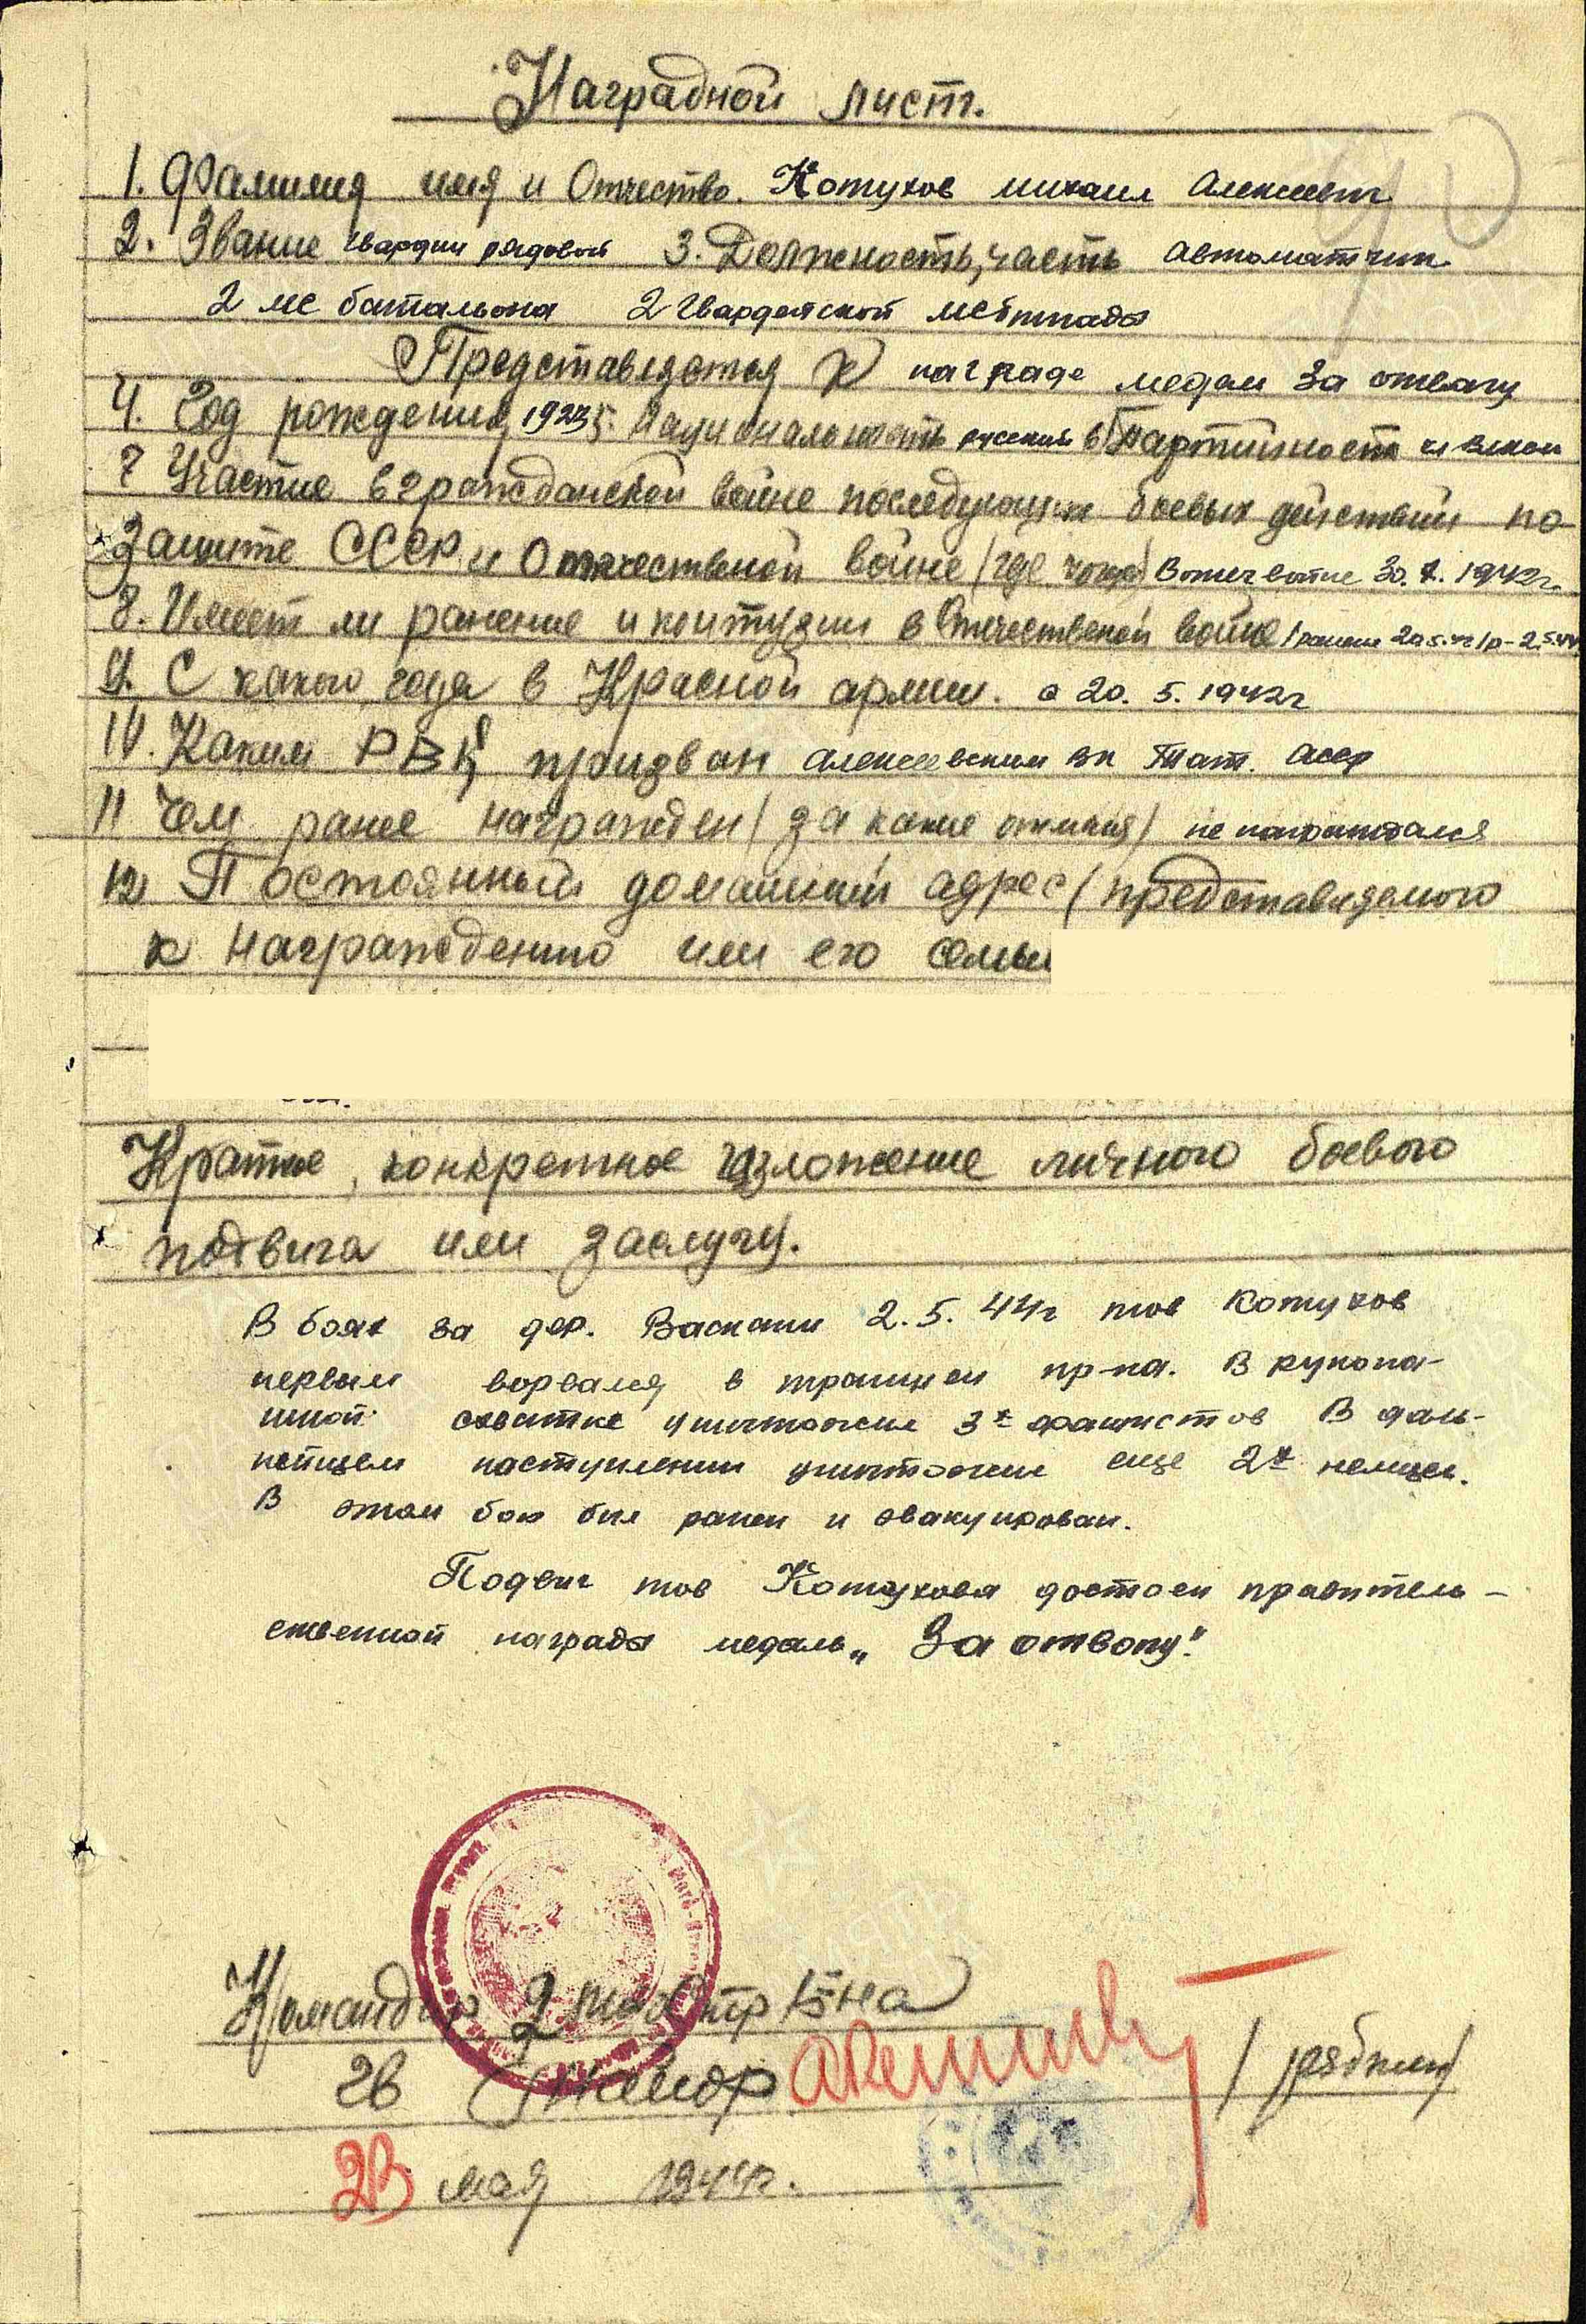 Наградной лист.
1. Фамилия имя и Отчество. Котухов михаил Алексеевич
2. Звание гвардии рядовой 3. Должность, часть автоматчик
2 мс батальона 2 гвардейской мсбригады
Представляется к награде медали За отвагу
4. Год рождения 1923 5. Национальность русский 6 Партийность чл влксм
7 Участие в гражданской войне последующих боевых действий по
защите СССР и Отечественной войне (где когда) В отеч войне 1942г.
8. Имеет ли ранение и контузии в Отечественой войне
9. С какого года в Красной армии. с 20. 5. 1942г
10. Каким РВК призван Алексеевским вк Тат. асср
11 Чем ранее награжден (за какие отличия) не награждался
12 Постоянный домашний адрес (представляемого
к награждению или его семьи
Краткое, конкретное изложение личного боевого
подвига или заслуги.
В боях за дер. Васкани 2. 5. 44г тов Котухов
первым ворвался в траншеи пр-ка. В рукопа-
шной схватке уничтожил 3х фашистов В даль-
нейшем наступлении уничтожил еще 2х немцев.
В этом бою был ранен и эвакуирован.
Подвиг тов Котухова достоен правитель-
ственной награды медаль „За отвагу".
Командир 2 б-на
гв майор /рябкин/
23 мая 1944г.